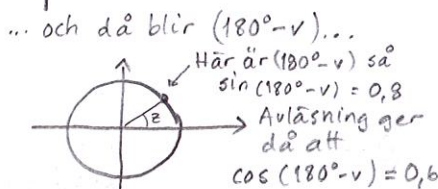 ... och då blir (180°-v)...
Här är (180°-v) så
sin (180°-v) = 0,8
z
Avläsning ger
då att
cos (180°-v) = 0,6